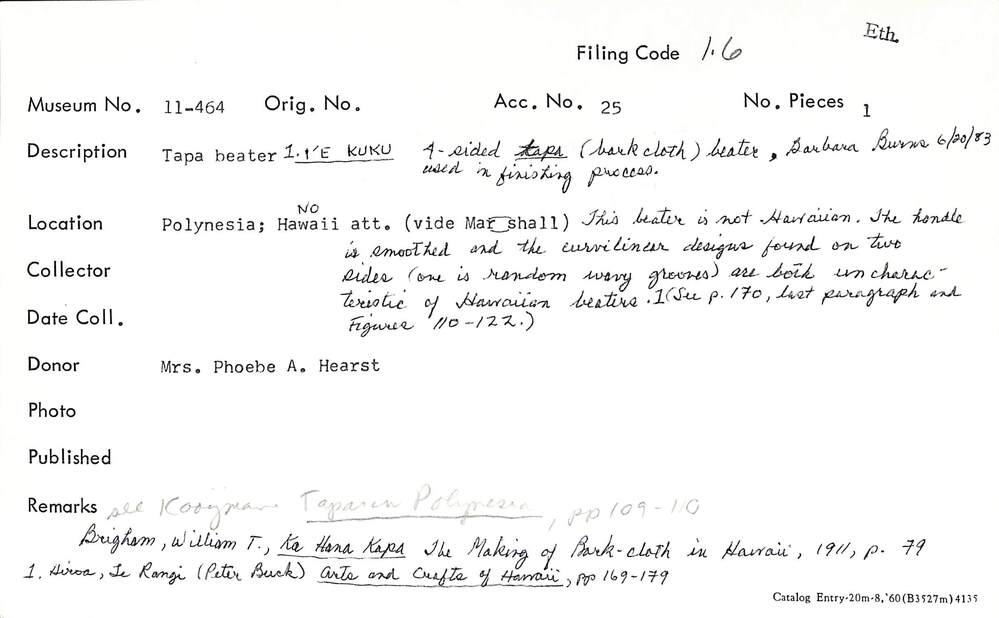 Eth.
Filing Code 1.6
Museum No. 11-464 Orig. No. Acc. No. 25 No. Pieces 1
Description Tapa beater 1. I'E KUKU 4-sided tapa (bark cloth) beater, Barbara Burns 6/20/83
used in finishing process.
NO
Location Polynesia; Hawaii att. (vide Marshall) This beater is not Hawaiian. The handle
is smoothed and the curvilinear designs found on two
Collector sides (one is random wavy grooves) are both uncharac-
teristic of Hawaiian beaters. 1 (See p. 170, last paragraph and
Date Coll. Figures 110-122.)
Donor Mrs. Phoebe A. Hearst
Photo
Published
Remarks see Kooijman Tapa in Polynesia, pp 109-110
Brigham, William T., Ka Hana Kapa The Making of Bark-cloth in Hawaii, 1911, p. 79
1. Hiroa, Te Rangi (Peter Buck) Arts and Crafts of Hawaii, pp 169-179
Catalog Entry-20m-8,'60(B3527m)4135